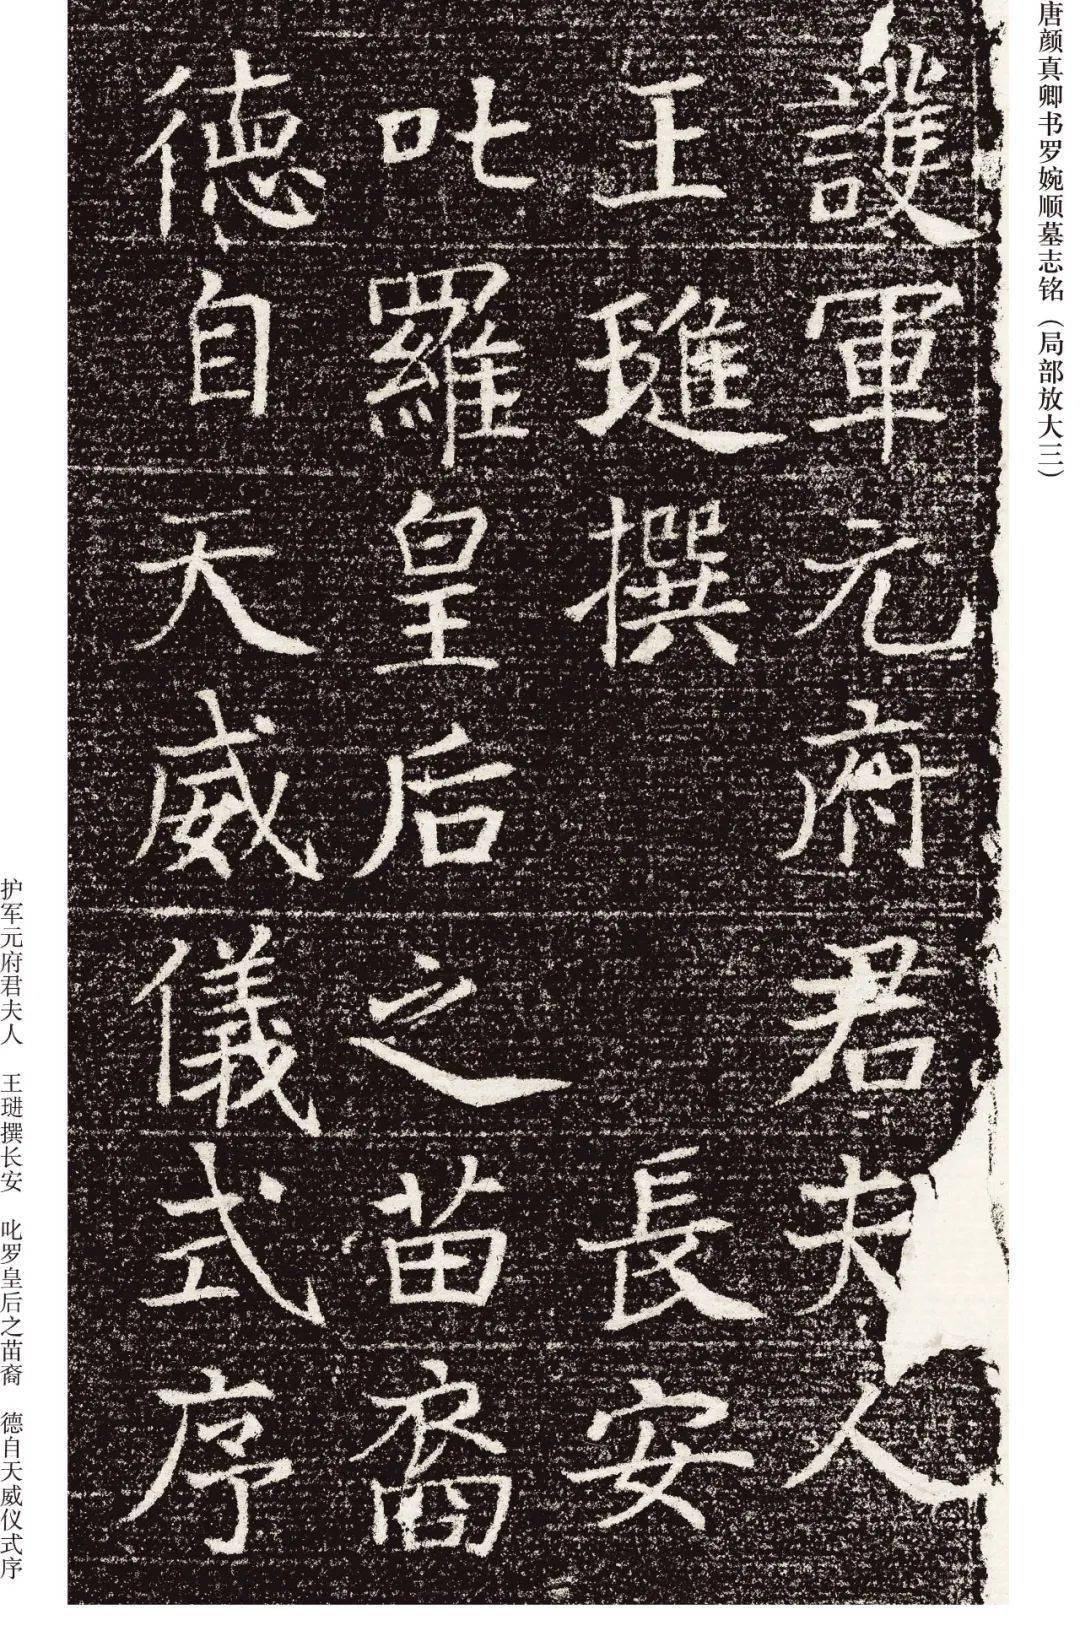 唐颜真卿书罗婉顺墓志铭（局部放大三）
護軍元府君夫人
王璡撰 長安
叱羅皇后之苗裔
德自天威儀式序
护军元府君夫人 王琎撰长安 叱罗皇后之苗裔 德自天威仪式序